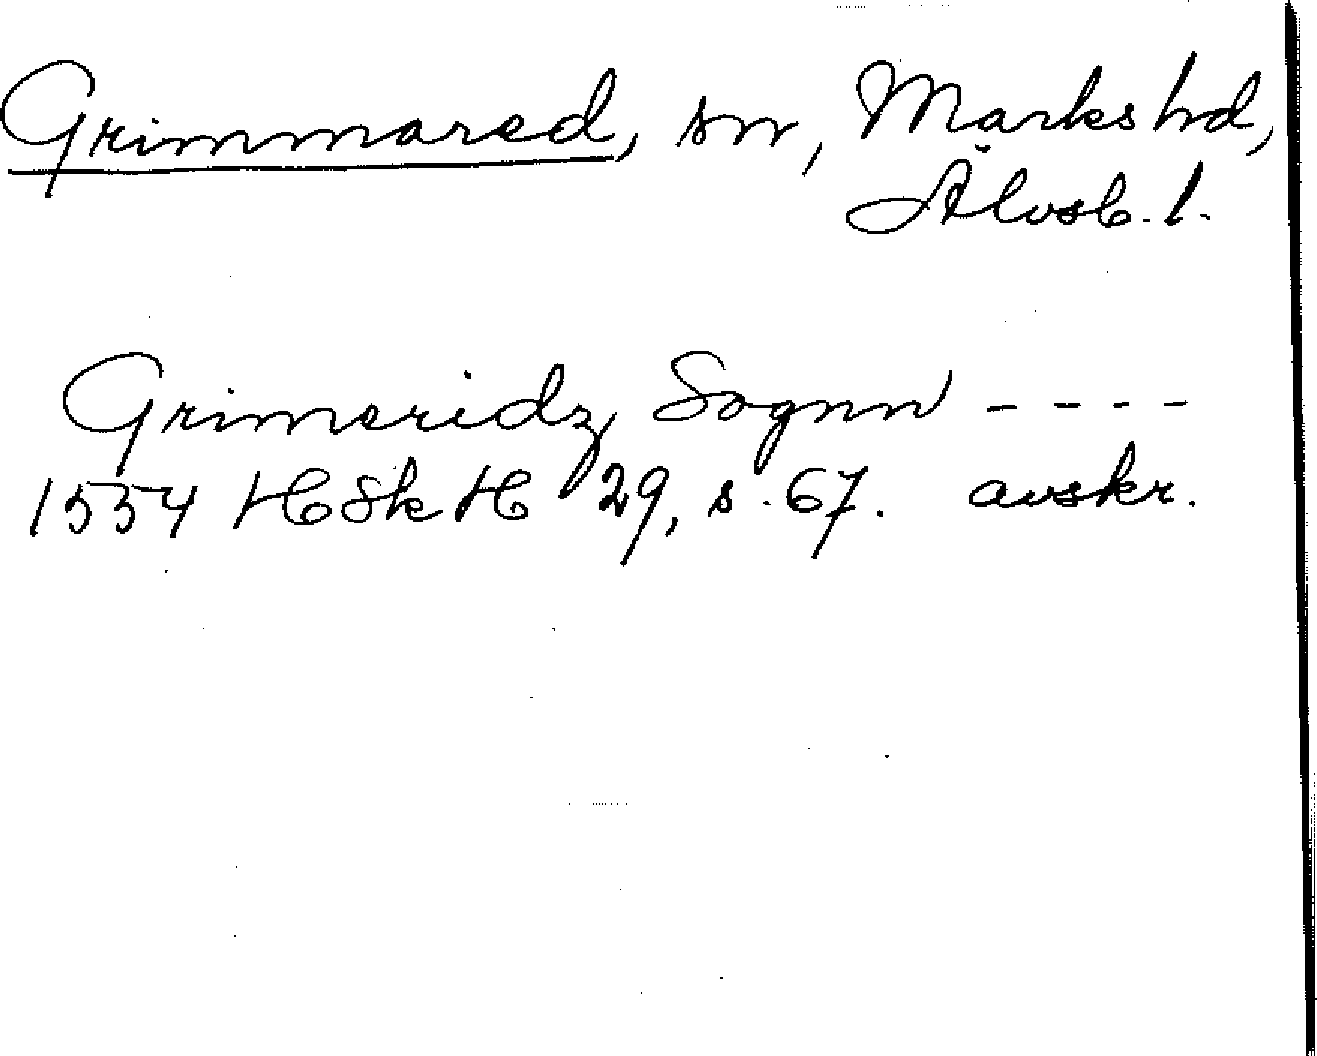 Grimmared, sn, Marks hd,
Älvsb. l.
Grimeridz Sognn - - - -
1554 HSkH 29, s. 67. avskr.